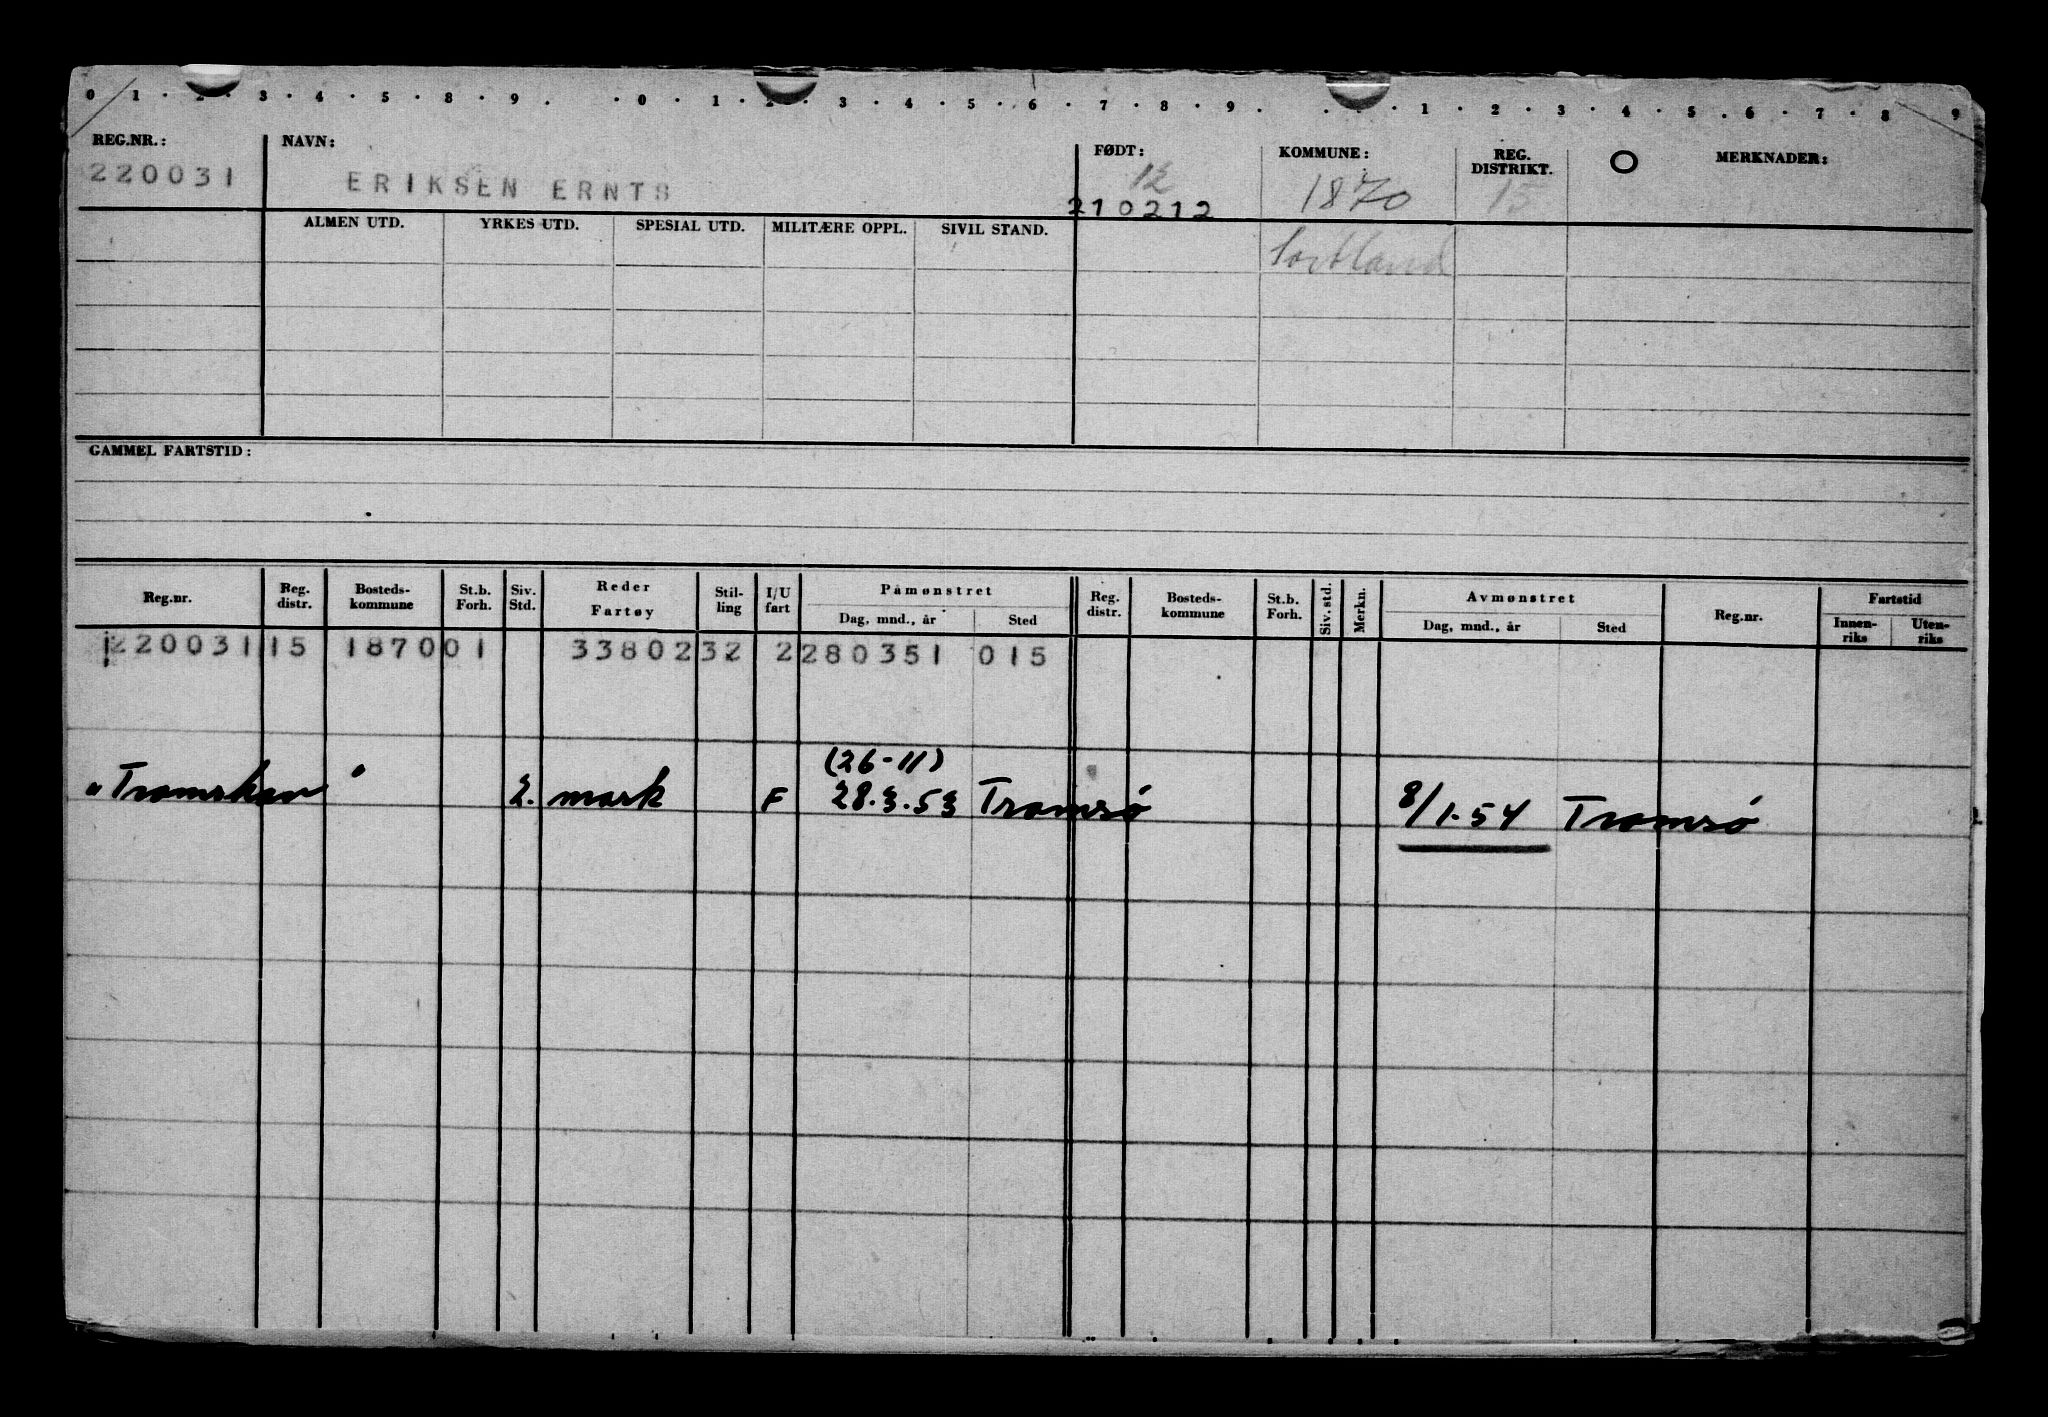 0 1 · 2 · 3 · 4 · 5 · 8 · 9 . · 0 · 1 · 2 · 3 · 4 · 5 · 6 · 7 · 8 · 9 . · · 1 · 2 · 3 · 4 · 5 . 6 · 7 · 8 9
REG.NR.: NAVN: FØDT: KOMMUNE: REG. DISTRIKT. O MERKNADER:
12
220031 ERIKSEN ERNTS 210212 1870 15
ALMEN UTD. YRKES UTD. SPESIAL UTD. MILITÆRE OPPL. SIVIL STAND.
Sortland
GAMMEL FARTSTID:
Reg.nr. Reg. distr. Bosteds-kommune St.b. Forh. Siv. Std. Reder Fartøy Stil-ling I/U fart Påmønstret Dag, mnd., år Sted Reg. distr. Bosteds-kommune St.b. Forh. Siv. std. Merkn. Avmønstret Dag, mnd., år Sted Reg.nr. Fartstid Innen-riks Uten-riks
220031 15 1870 01 33802 32 2 280351 015
(26-11)
"Tromshav" 2. mask F 28.3.53 Tromsø 8/1-54 Tromsø